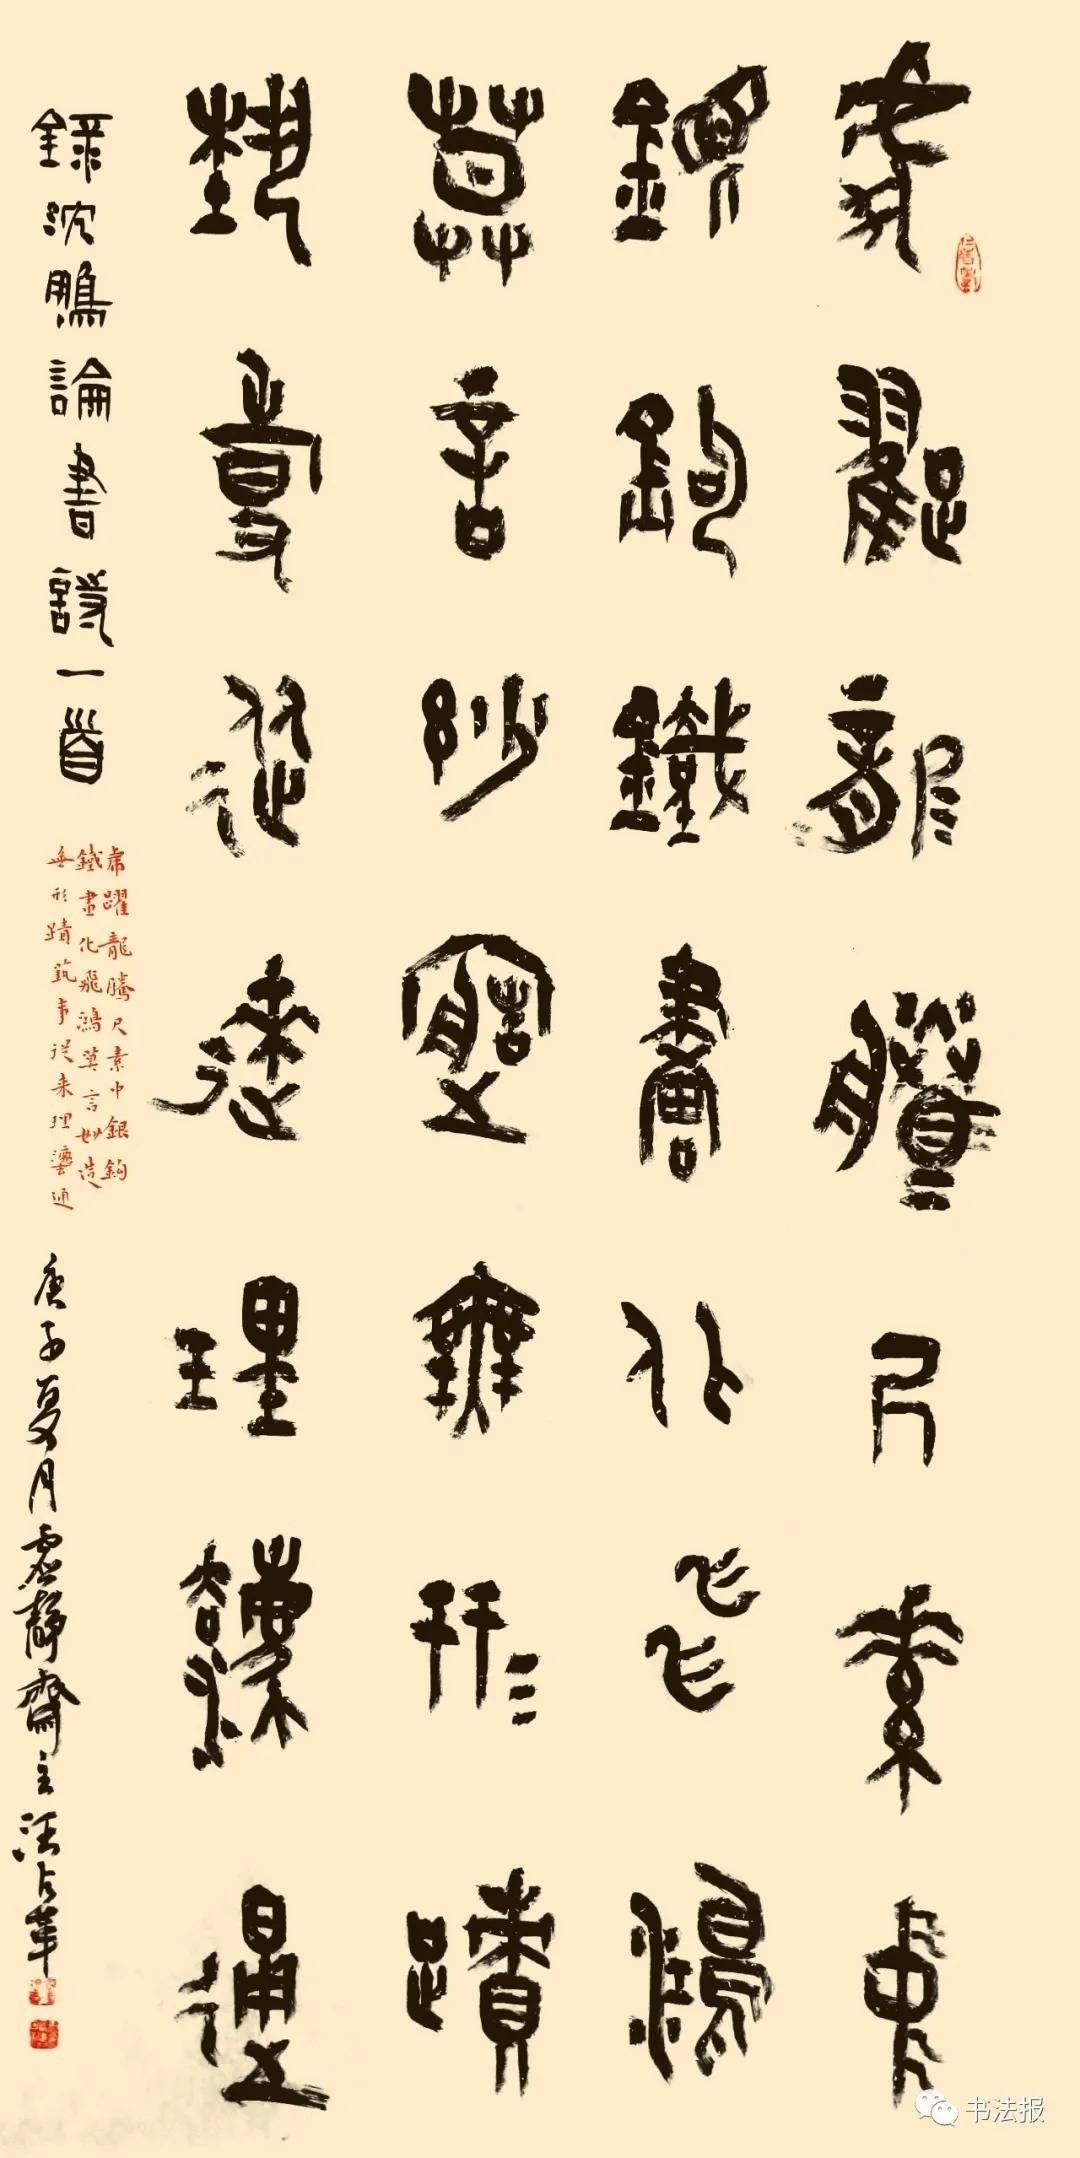 虎躍龍騰尺素中
銀鉤鐵畫化飛鴻
莫言妙造無形蹟
藝事從來理趣通
錄沈鵬論書詩一首
虎躍龍騰尺素中銀鉤
鐵畫化飛鴻莫言妙造
無形蹟藝事從來理
通
庚子夏月虛靜齋主汪占革
书法报